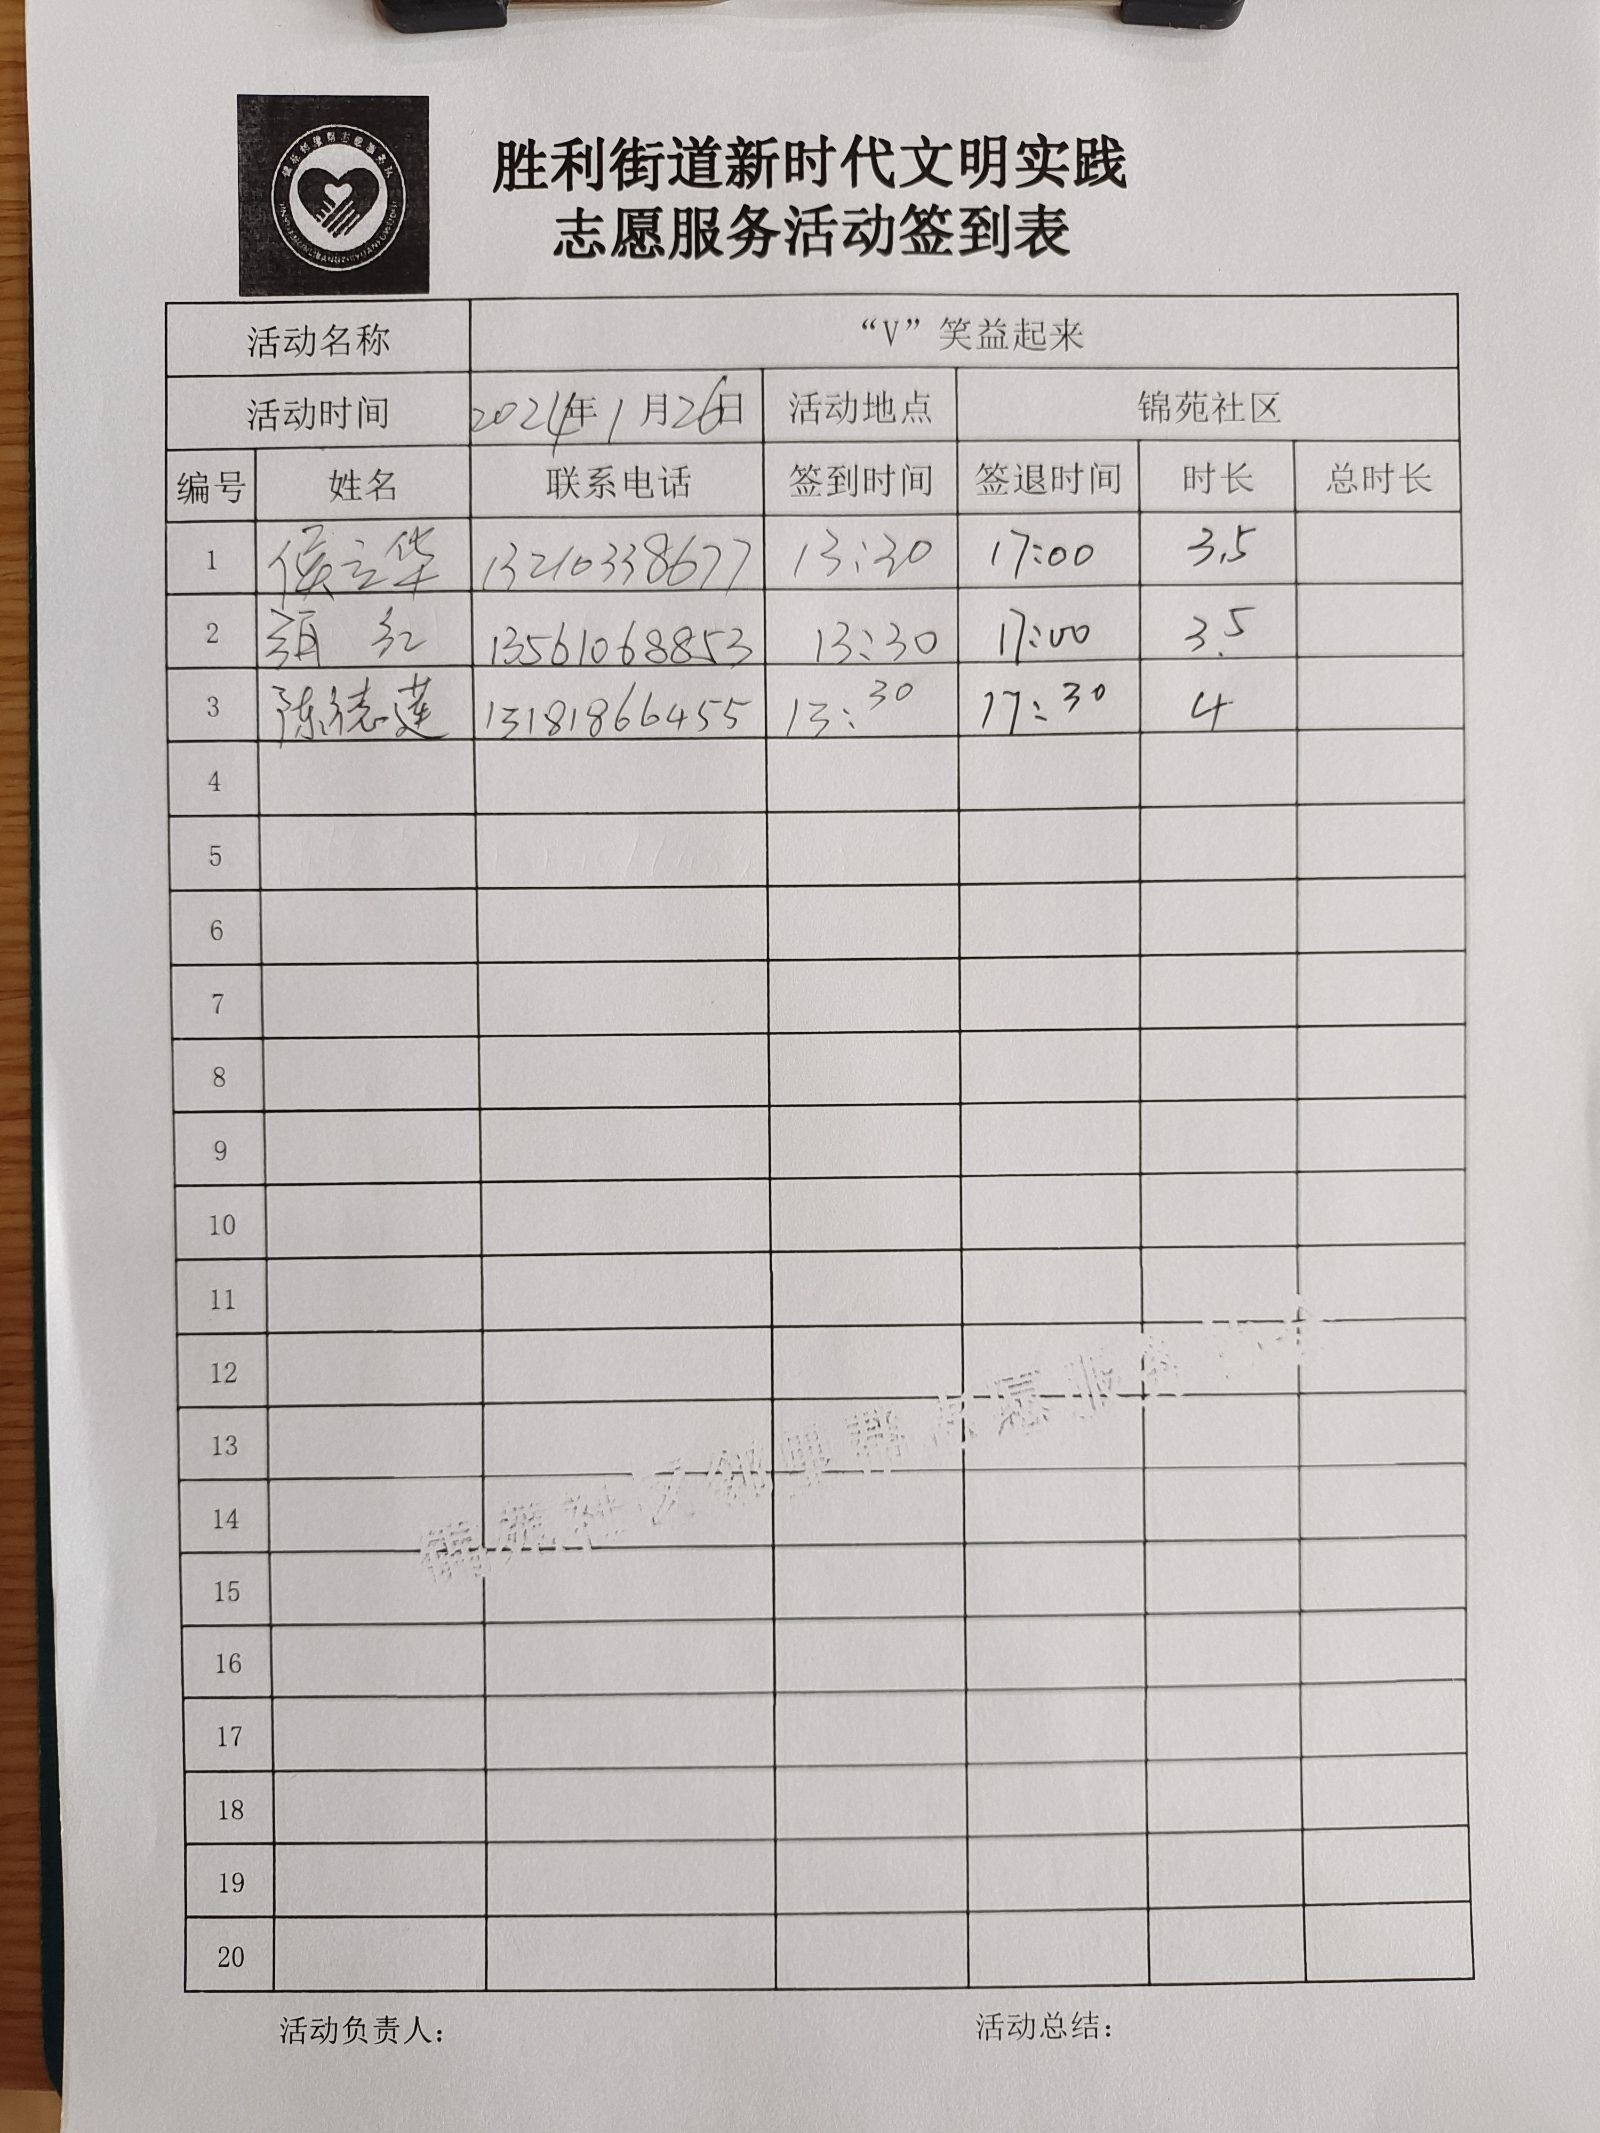 胜利街道新时代文明实践
志愿服务活动签到表
活动名称 “V”笑益起来
活动时间 2024年1月26日 活动地点 锦苑社区
编号 姓名 联系电话 签到时间 签退时间 时长 总时长
1 侯立华 13210338677 13:30 17:00 3.5
2 红 13561068853 13:30 17:00 3.5
3 陈德莲 13181866455 13:30 17:30 4
4
5
6
7
8
9
10
11
12
13
14
15
16
17
18
19
20
锦苑社区邻里帮志愿服务
活动负责人： 活动总结：